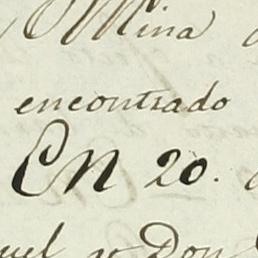 Mina
encontrado
En 20.
uel y Don